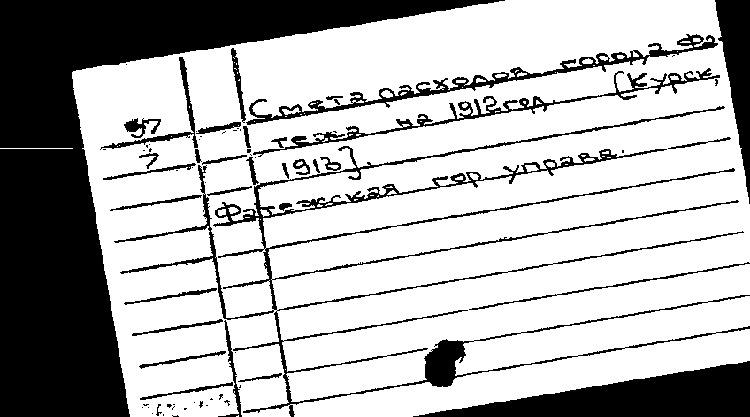 Смета расходов города Фа-
57 тежа на 1912 год. [Курск,
7 1913].
Фатежская гор. управа.